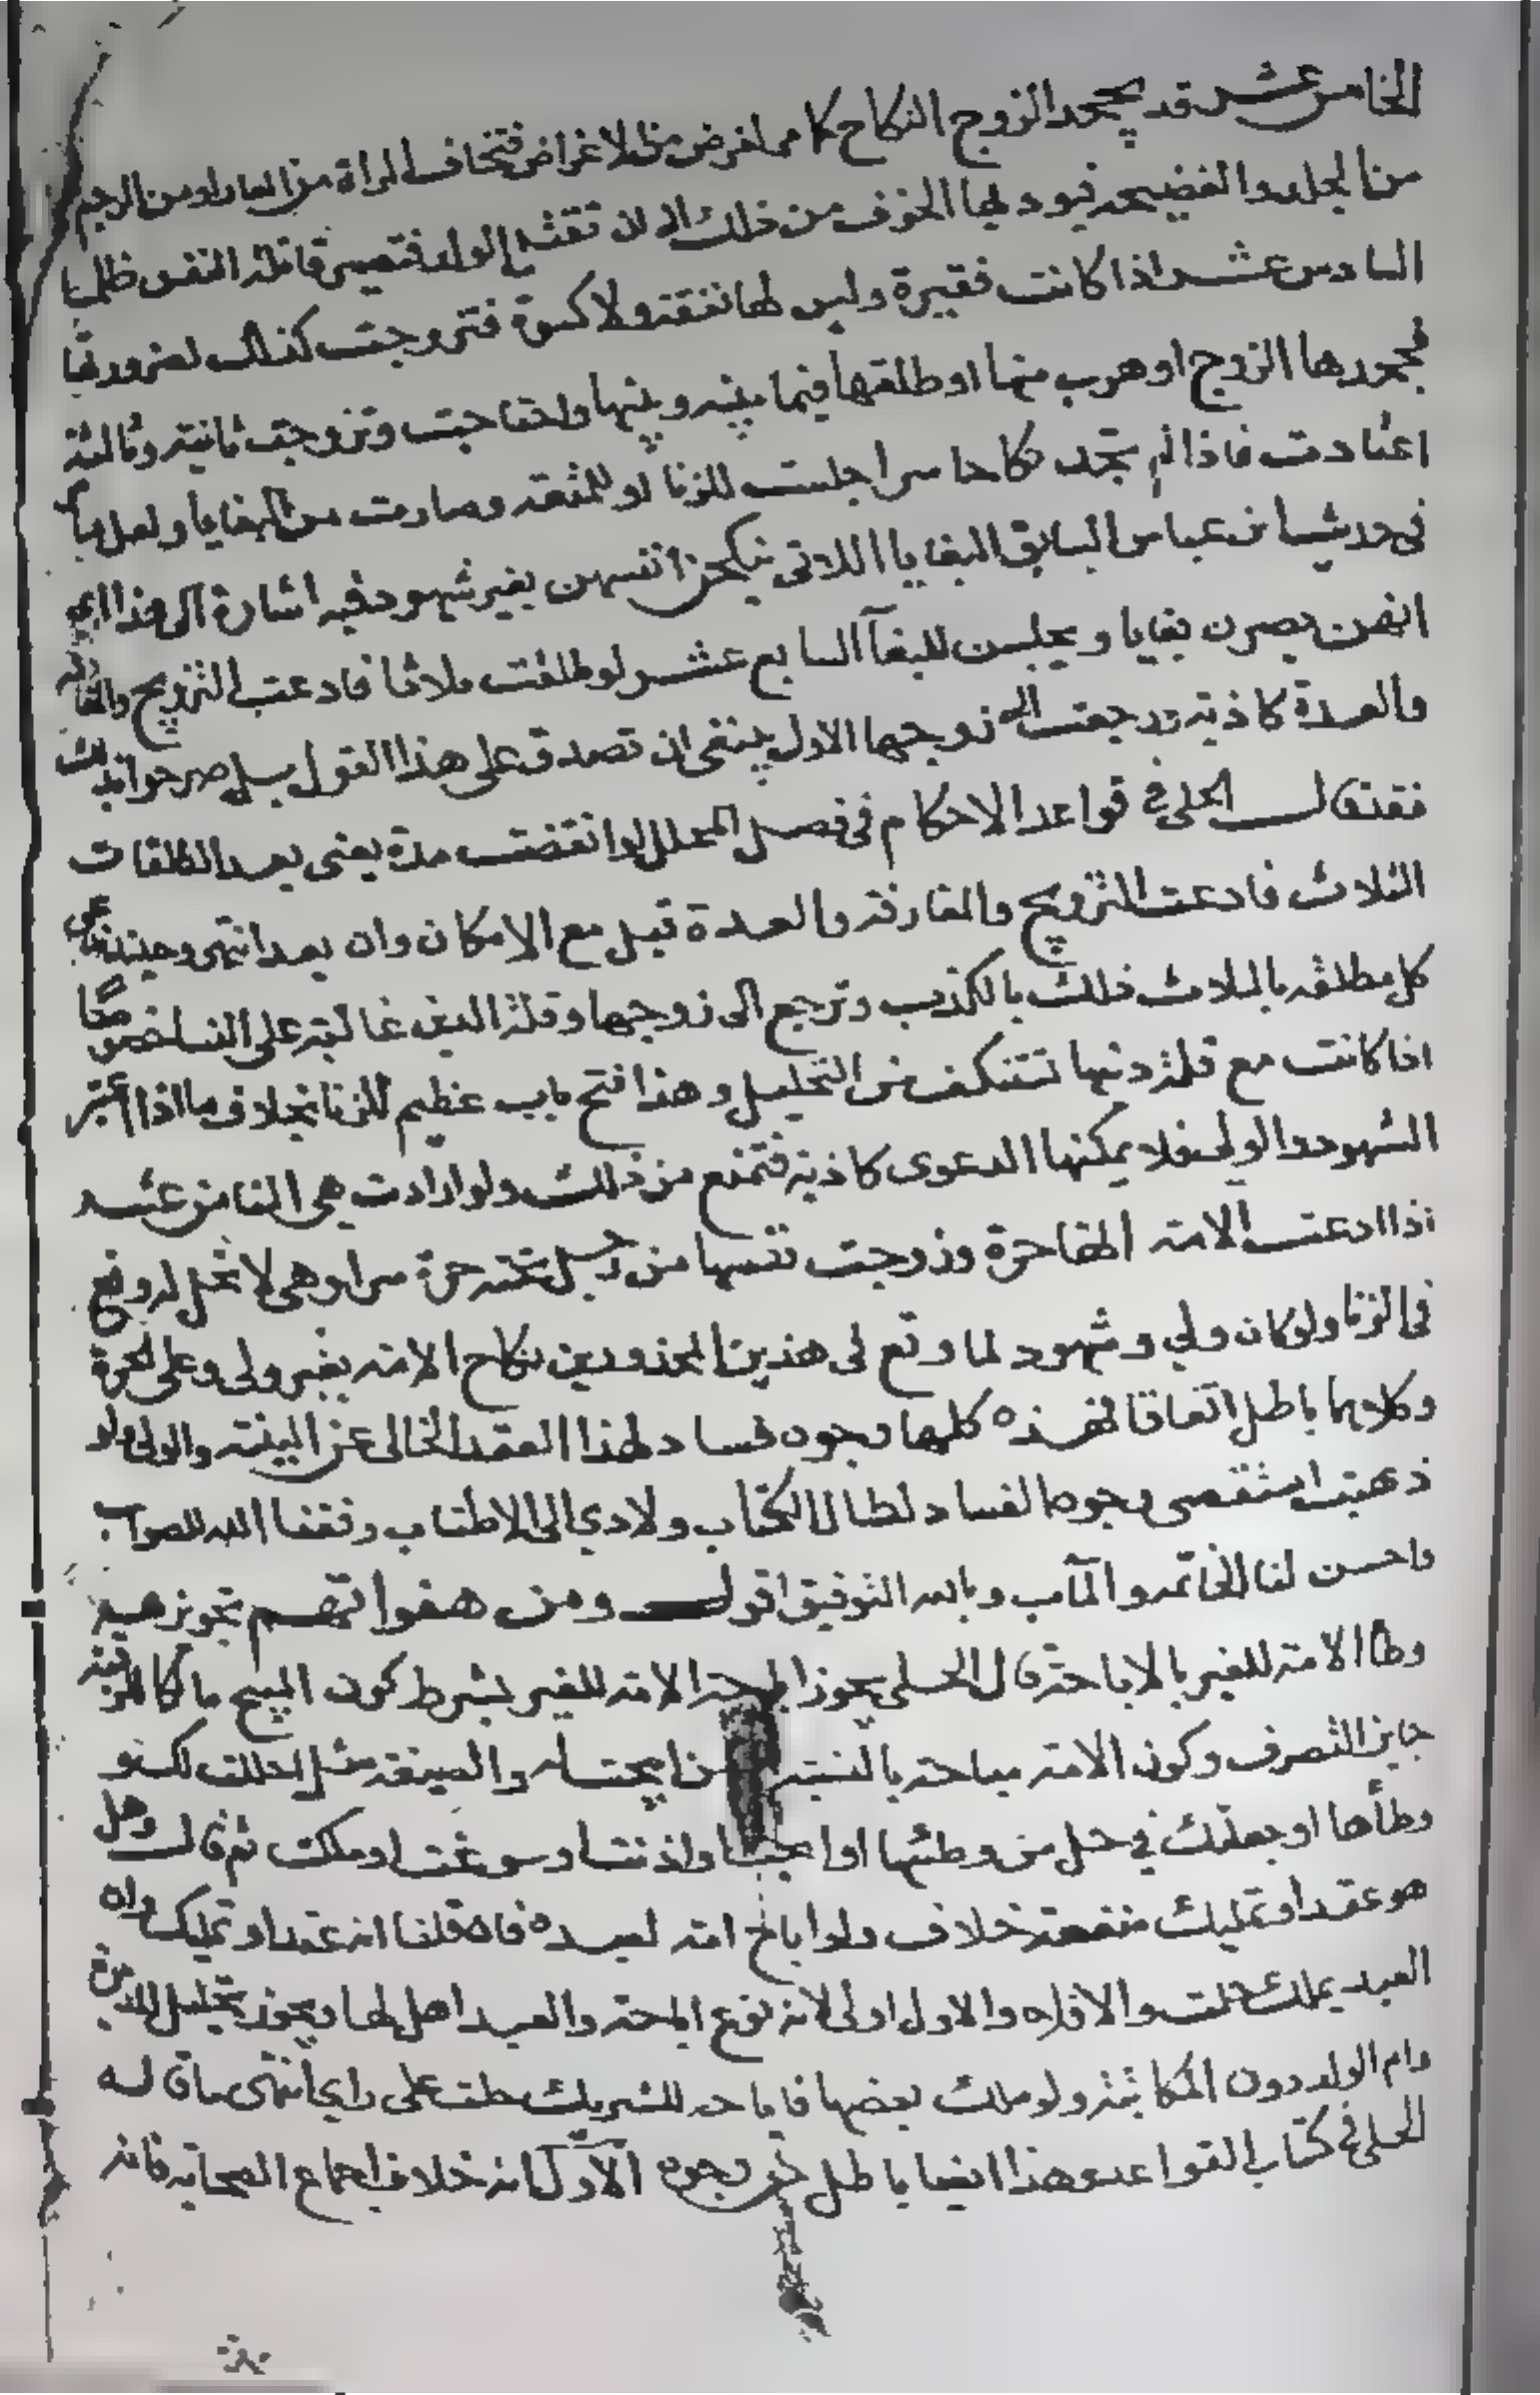 الخامس عشر قد يجحد الزوج النكاح كما مر لغرض من الاغراض فتخاف المراة من العار او من الرجم
من الجلد والفضيحة فيوديها الخوف من ذلك الى ان تقتل الولد فتصير قاتلة النفس ظلما
السادس عشر اذا كانت فقيرة وليس لها نفقة ولا كسوة فتزوجت كذلك لضرورتها
فجحدها الزوج او هرب منها او طلقها فيما بينه وبينها واحتاجت وتزوجت ثانية وثالثة
اعتادت فاذا لم تجد نكاحا سرا جلست للزنا او للمتعة وصارت من البغايا ولعل ما
في حديث ابن عباس السابق البغايا اللاتي ينكحن انفسهن بغير شهود فيه اشارة الى هذا اي
انهن يصرن بغايا ويجلسن للبغآ السابع عشر لو طلقت ثلاثا فادعت التزويج والمفارقة
والعدة كاذبة ورجعت الى زوجها الاول ينبغي ان تصدق على هذا القول بل صرحوا بذلك
فقد قال الحلي في قواعد الاحكام في فصل المحلل لو انقضت مدة يعني بعد الطلقات
الثلاث فادعت التزويج والمفارقة والعدة قبل مع الامكان وان بعد انتهى وحينئذ
كل مطلقة بالثلاث ذلك بالكذب وترجع الى زوجها وقلة الدين غالبة على النسا خصوصا
اذا كانت مع قلة دينها تستنكف من التحليل وهذا فتح باب عظيم للزنا بخلاف ما اذا اعتبر
الشهود والولي فلا يمكنها الدعوى كاذبة فتمنع من ذلك ولو ارادت هي الثامن عشر
اذا ادعت الامة انها حرة وزوجت نفسها من رجل تحته حرة سرا وهي لا تحل له وقع
في الزنا ولو كان ولي وشهود لما وقع في هذين المحذورين نكاح الامة بغير ولي وعلى الحرة
وكلاهما باطل اتفاقا فهذه كلها وجوه فساد لهذا العقد الخالي عن البينة والولي ولو
ذهبت استقصي وجوه الفساد لطال الكتاب ولادي الى الاطناب وفقنا الله للصواب
واحسن لنا الخاتمة والمآب وبالله التوفيق اقول ومن هفواتهم تجويزهم
وطا الامة للغير بالاباحة قال الحلي يجوز اباحة الامة للغير بشرط كون المبيح مالكا لرقبته
جايز التصرف وكون الامة مباحة بالنسبة الى من ابيحت له والصيغة مثل احللت لك
وطأها او جعلتك في حل من وطئها او ابحت او اذنت او سوغت او ملكت ثم قال وهل
هو عقد او تمليك منفعة خلاف ولو اباح امته لعبده فان قلنا انه عقد او تمليك وان
العبد يملك حلت والا فلا والاول اولى لانه نوع اباحة والعبد اهل لها ويجوز تحليل المدبرة
وام الولد دون المكاتبة ولو ملك بعضها فاباحته للشريك حلت على راي انتهى ما قاله
الحلي في كتاب القواعد وهذا ايضا باطل من وجوه الآول انه خلاف اجماع الصحابة فانه